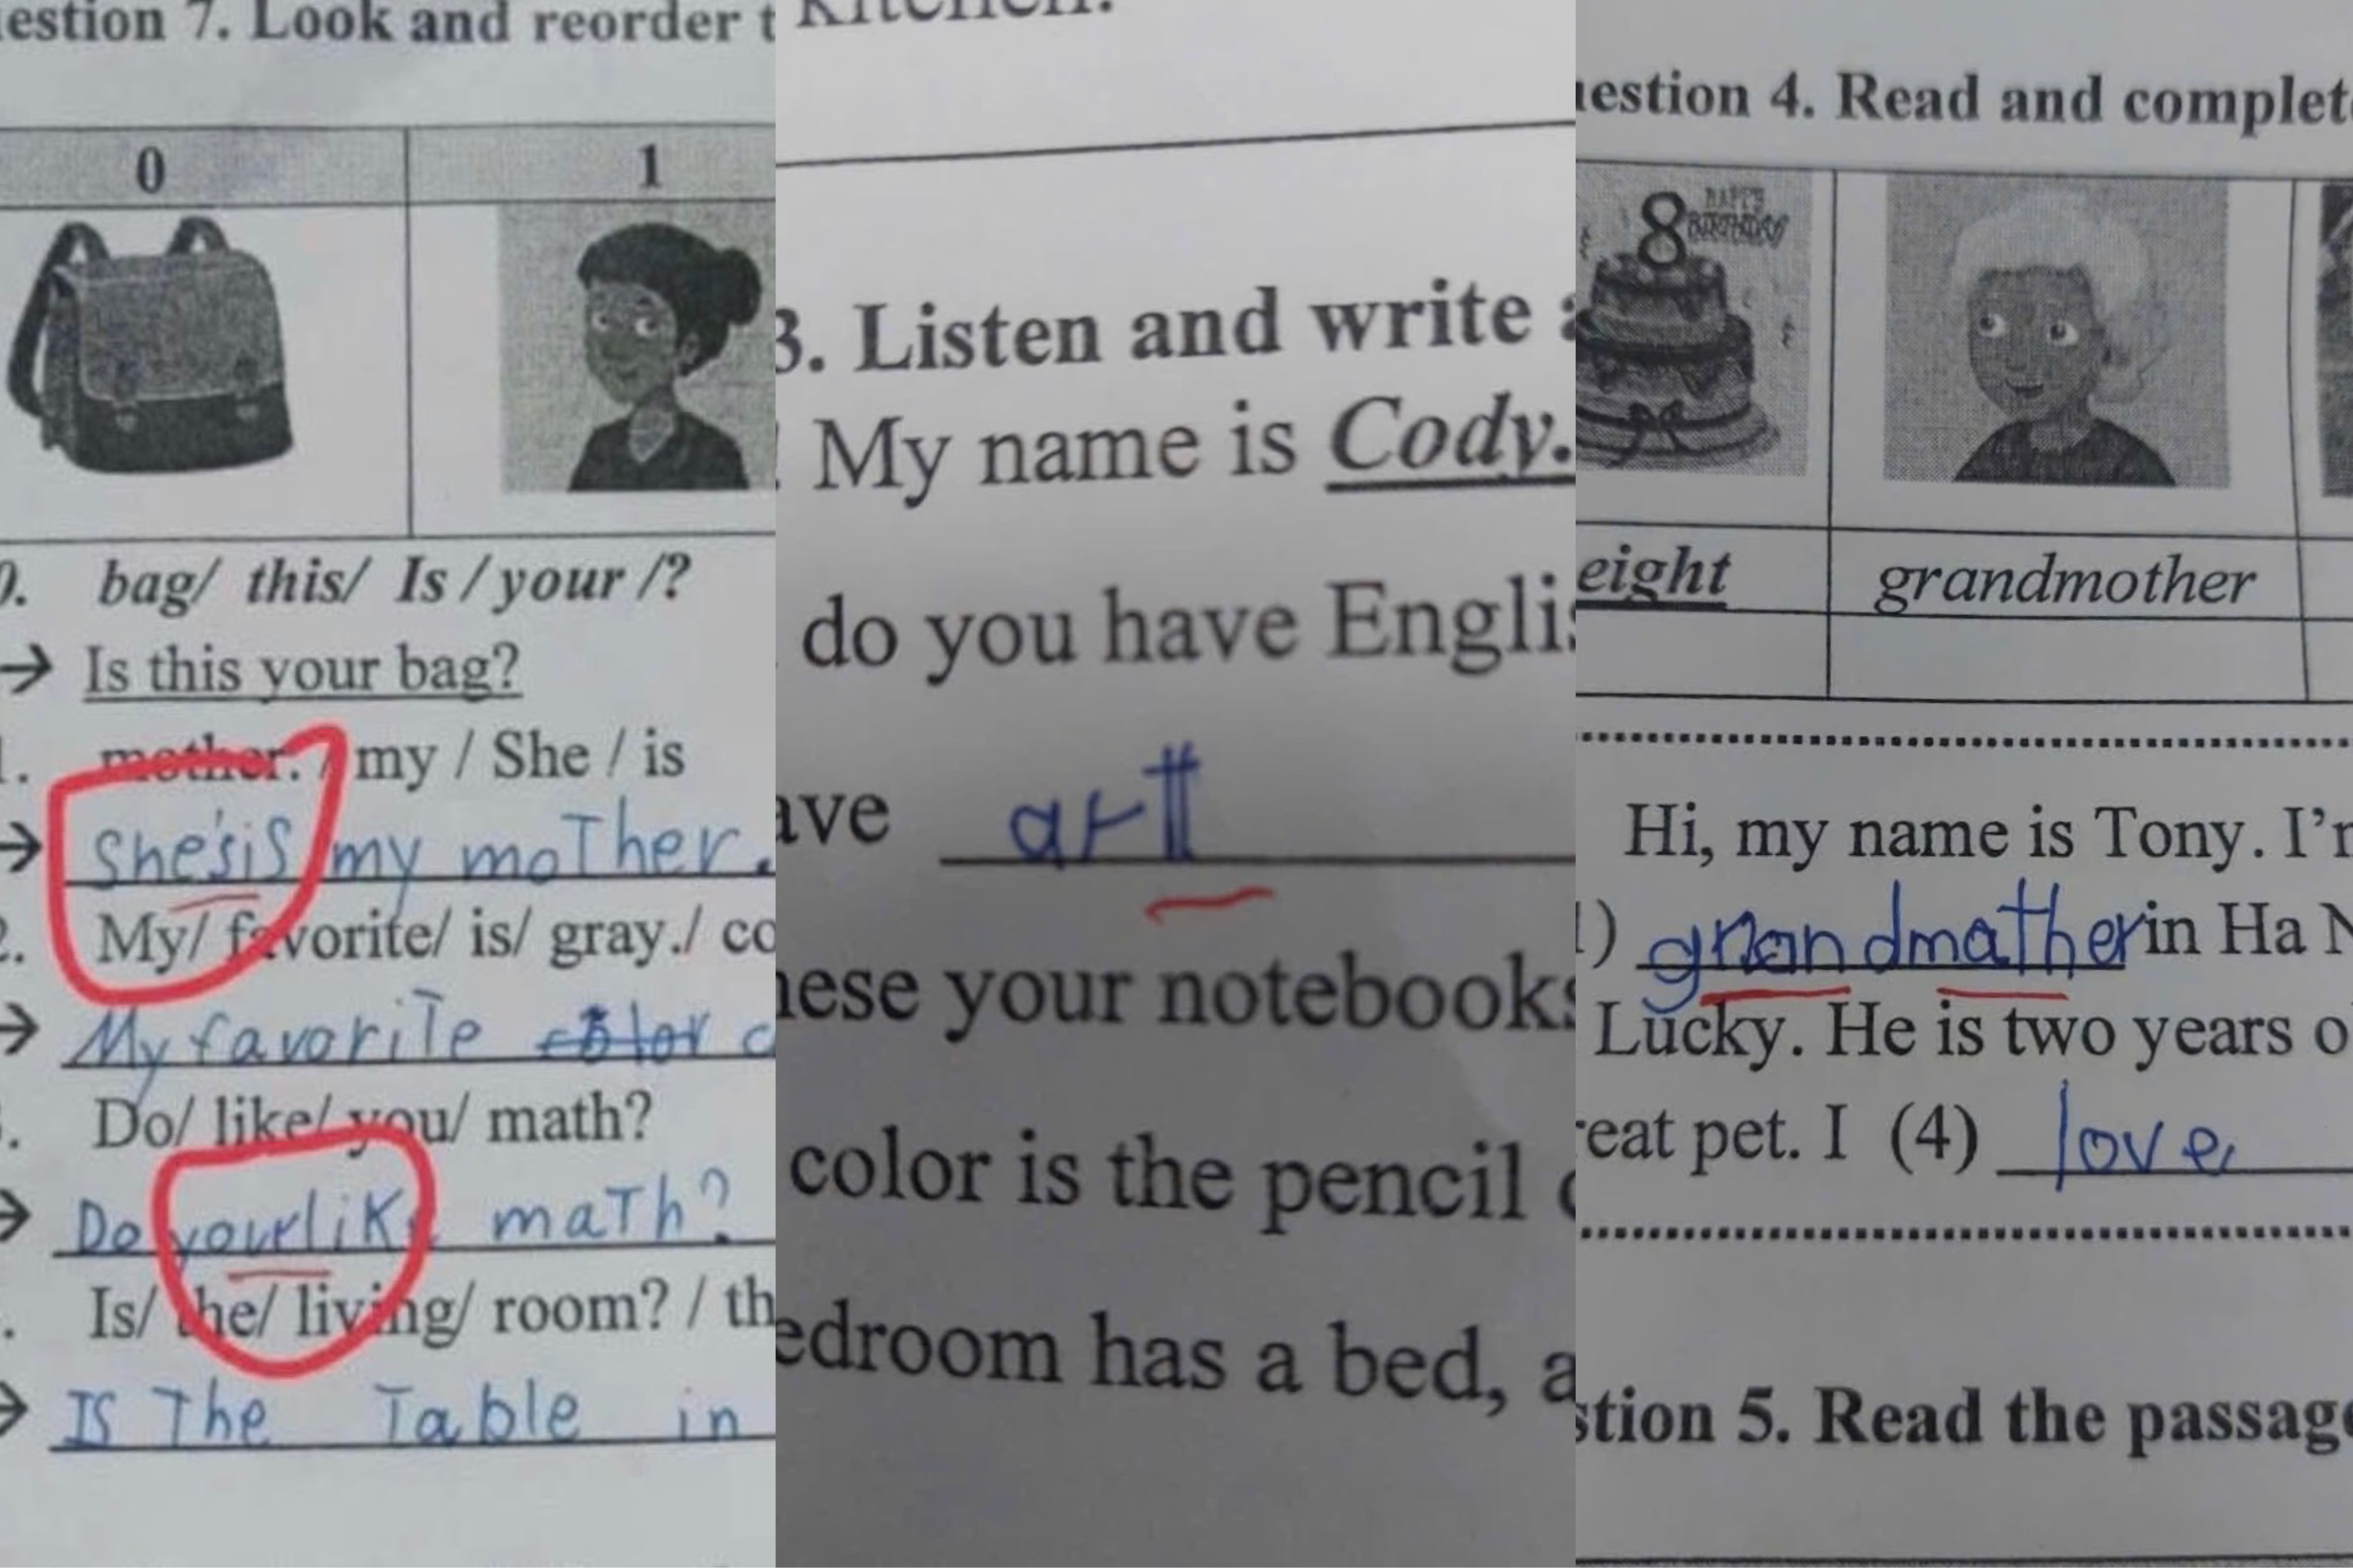 estion 7. Look and reorder t
0 1
0. bag/ this/ Is / your /?
→ Is this your bag?
1. mother. / my / She / is
→ she'sis my moTher.
2. My/ favorite/ is/ gray./ co
→ My favoriTe color c
. Do/ like/ you/ math?
→ Do yourlike maTh?
. Is/ the/ living/ room? / th
→ Is The Table in
kitchen.
3. Listen and write a
! My name is Cody.
do you have Englis
ave artt
hese your notebooks
color is the pencil c
edroom has a bed, a
uestion 4. Read and complete
8 HAPPY BIRTHDAY
eight grandmother
Hi, my name is Tony. I'm
1) grnandmather in Ha N
Lucky. He is two years o
reat pet. I (4) love
stion 5. Read the passage